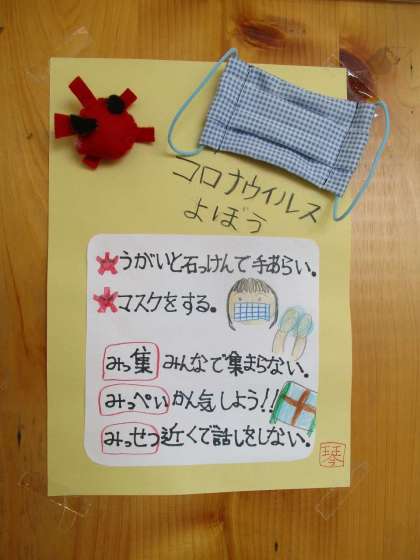 コロナウイルス
よぼう
うがいと石っけんで手あらい。
マスクをする。
みっ集 みんなで集まらない。
みっぺい かん気しよう!!
みっせつ 近くで話しをしない。
琴